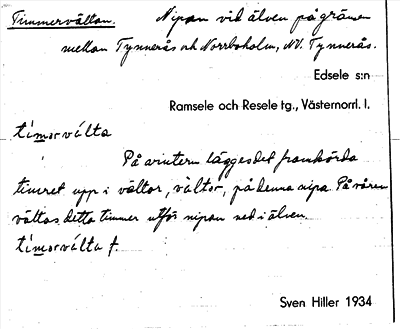 Timmervältan. Nipan vid älven på gränsen
mellan Tynnerås och Norrboholm, NV. Tynnerås.
Edsele s:n
Ramsele och Resele tg., Västernorrl. l.
tímorvä̀lta
På vintern lägges det framkörda
timret upp i vältor, vältor, på denna nipa. På våren
vältas detta timmer utför nipan ned i älven.
tímorvä̀lta f.
Sven Hiller 1934